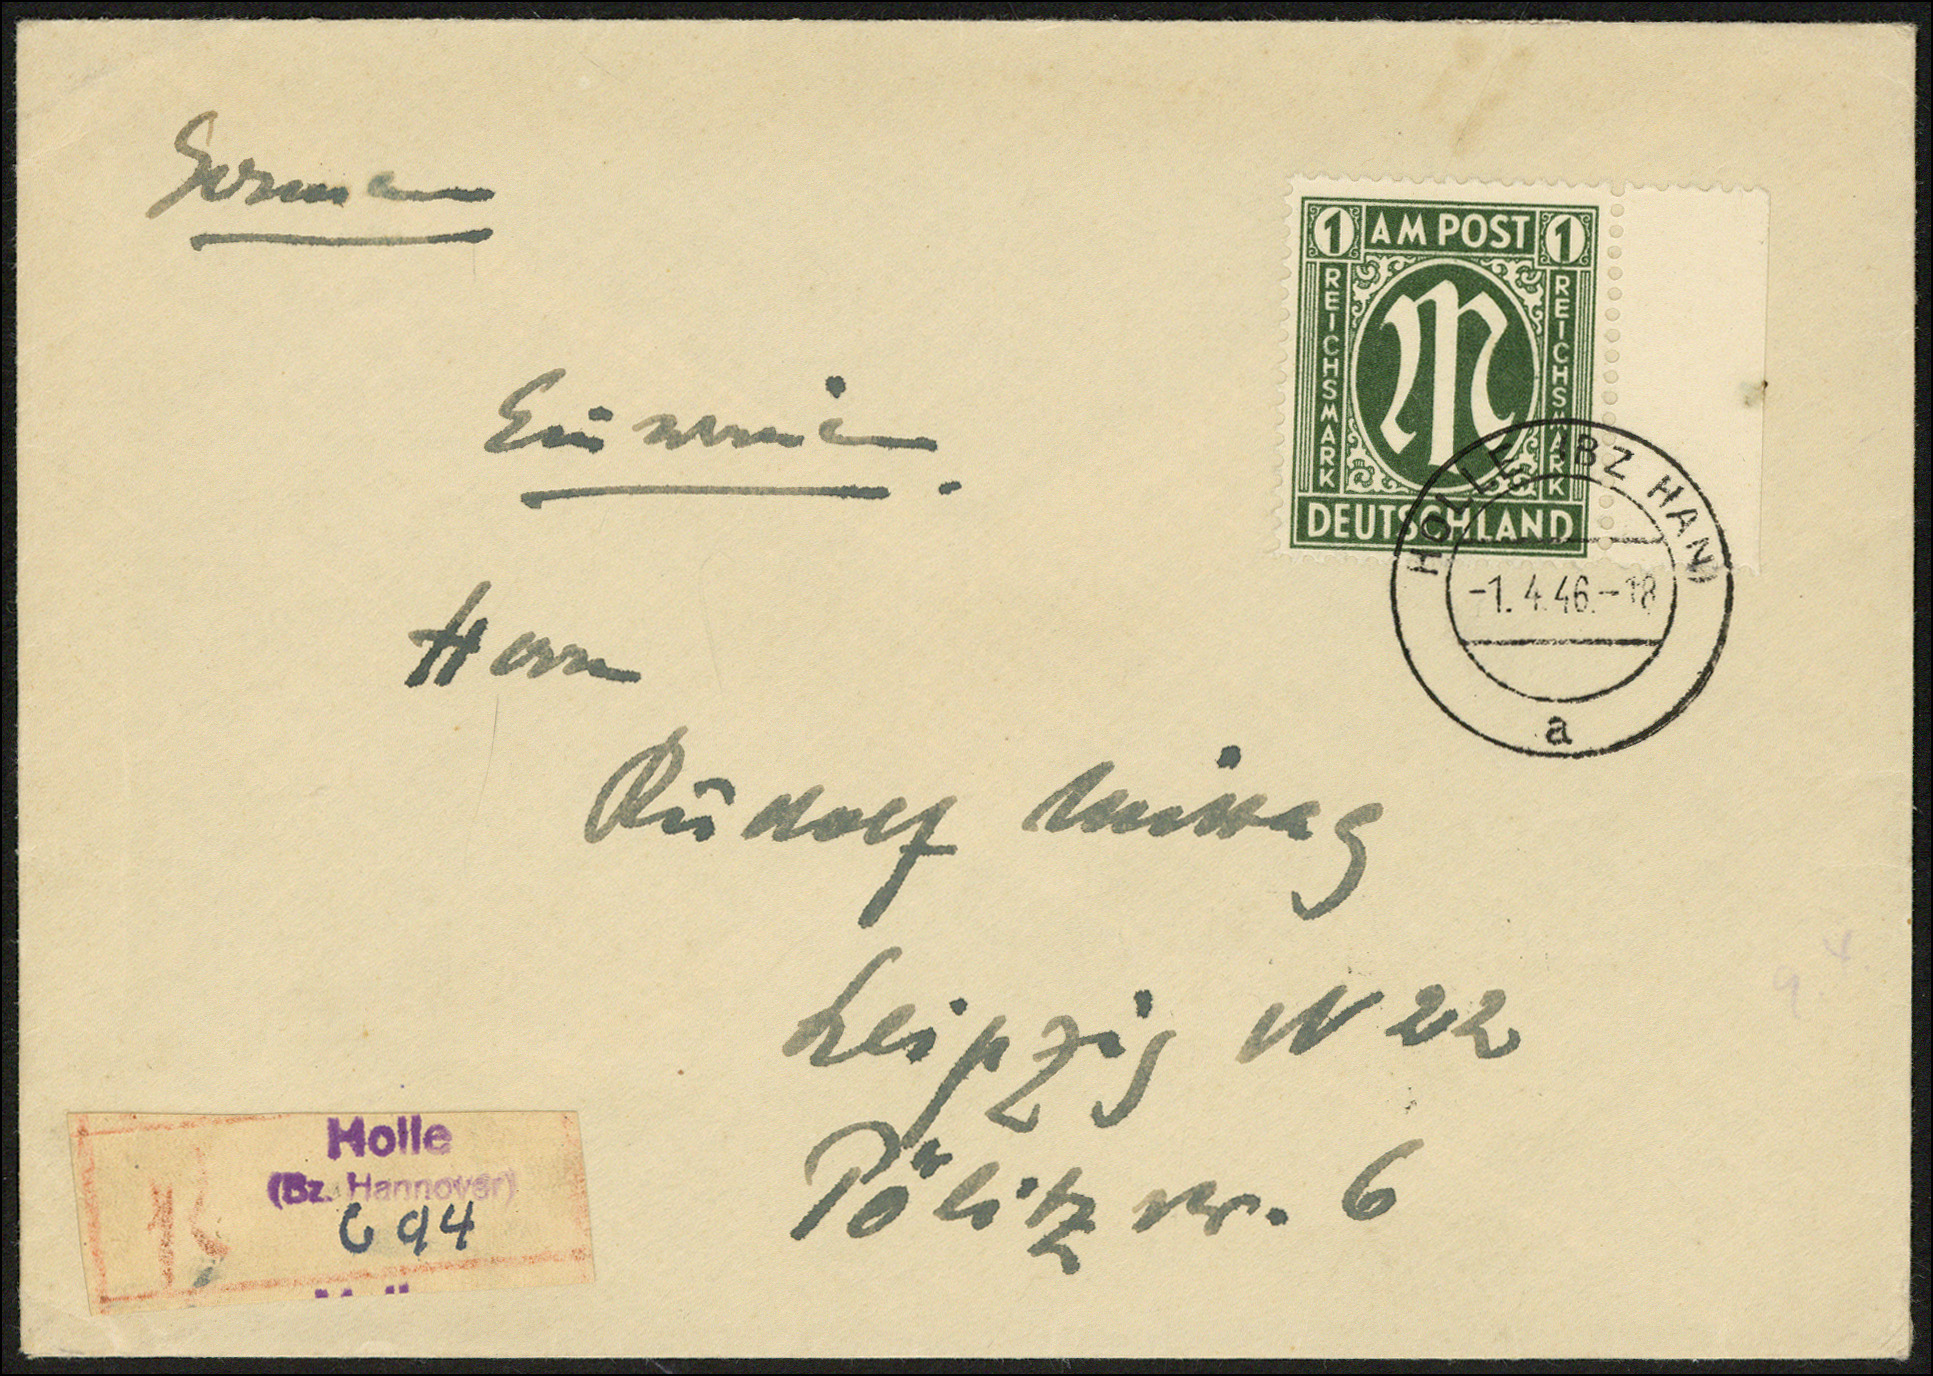 German
Einschreiben.
Herrn
Rudolf Mittag
Leipzig N 22
Pölitzstr. 6
1 AM POST 1
REICHSMARK
REICHSMARK
DEUTSCHLAND
HOLLE (BZ HAN)
-1.4.46.-18
a
Holle
(Bz. Hannover)
R
694